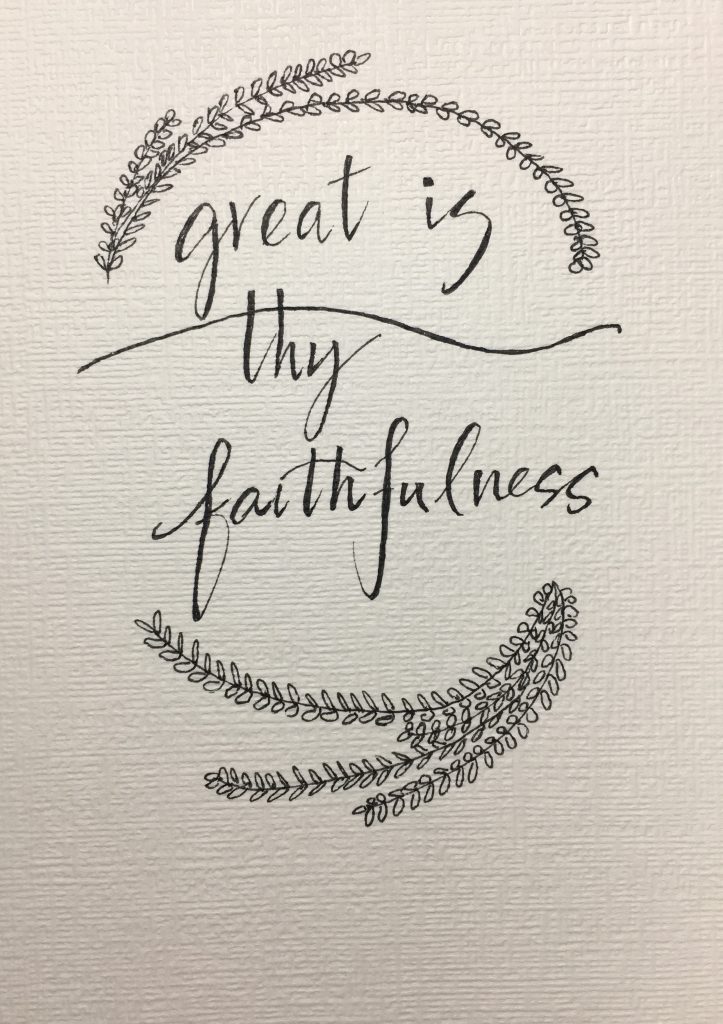 great is
thy
faithfulness